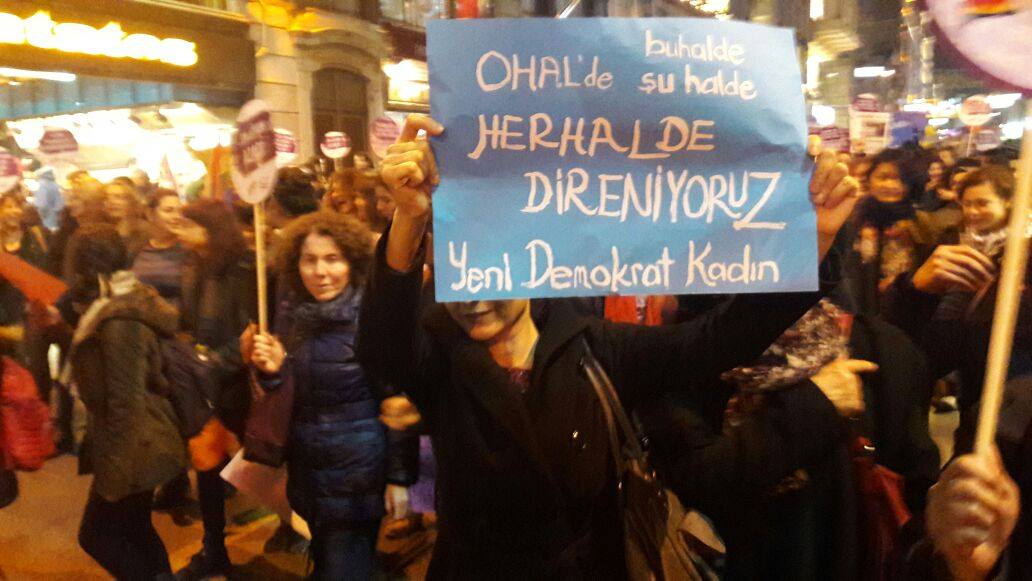 buhalde
OHAL'de şu halde
HERHALDE
DİRENİYORUZ
Yeni Demokrat Kadın